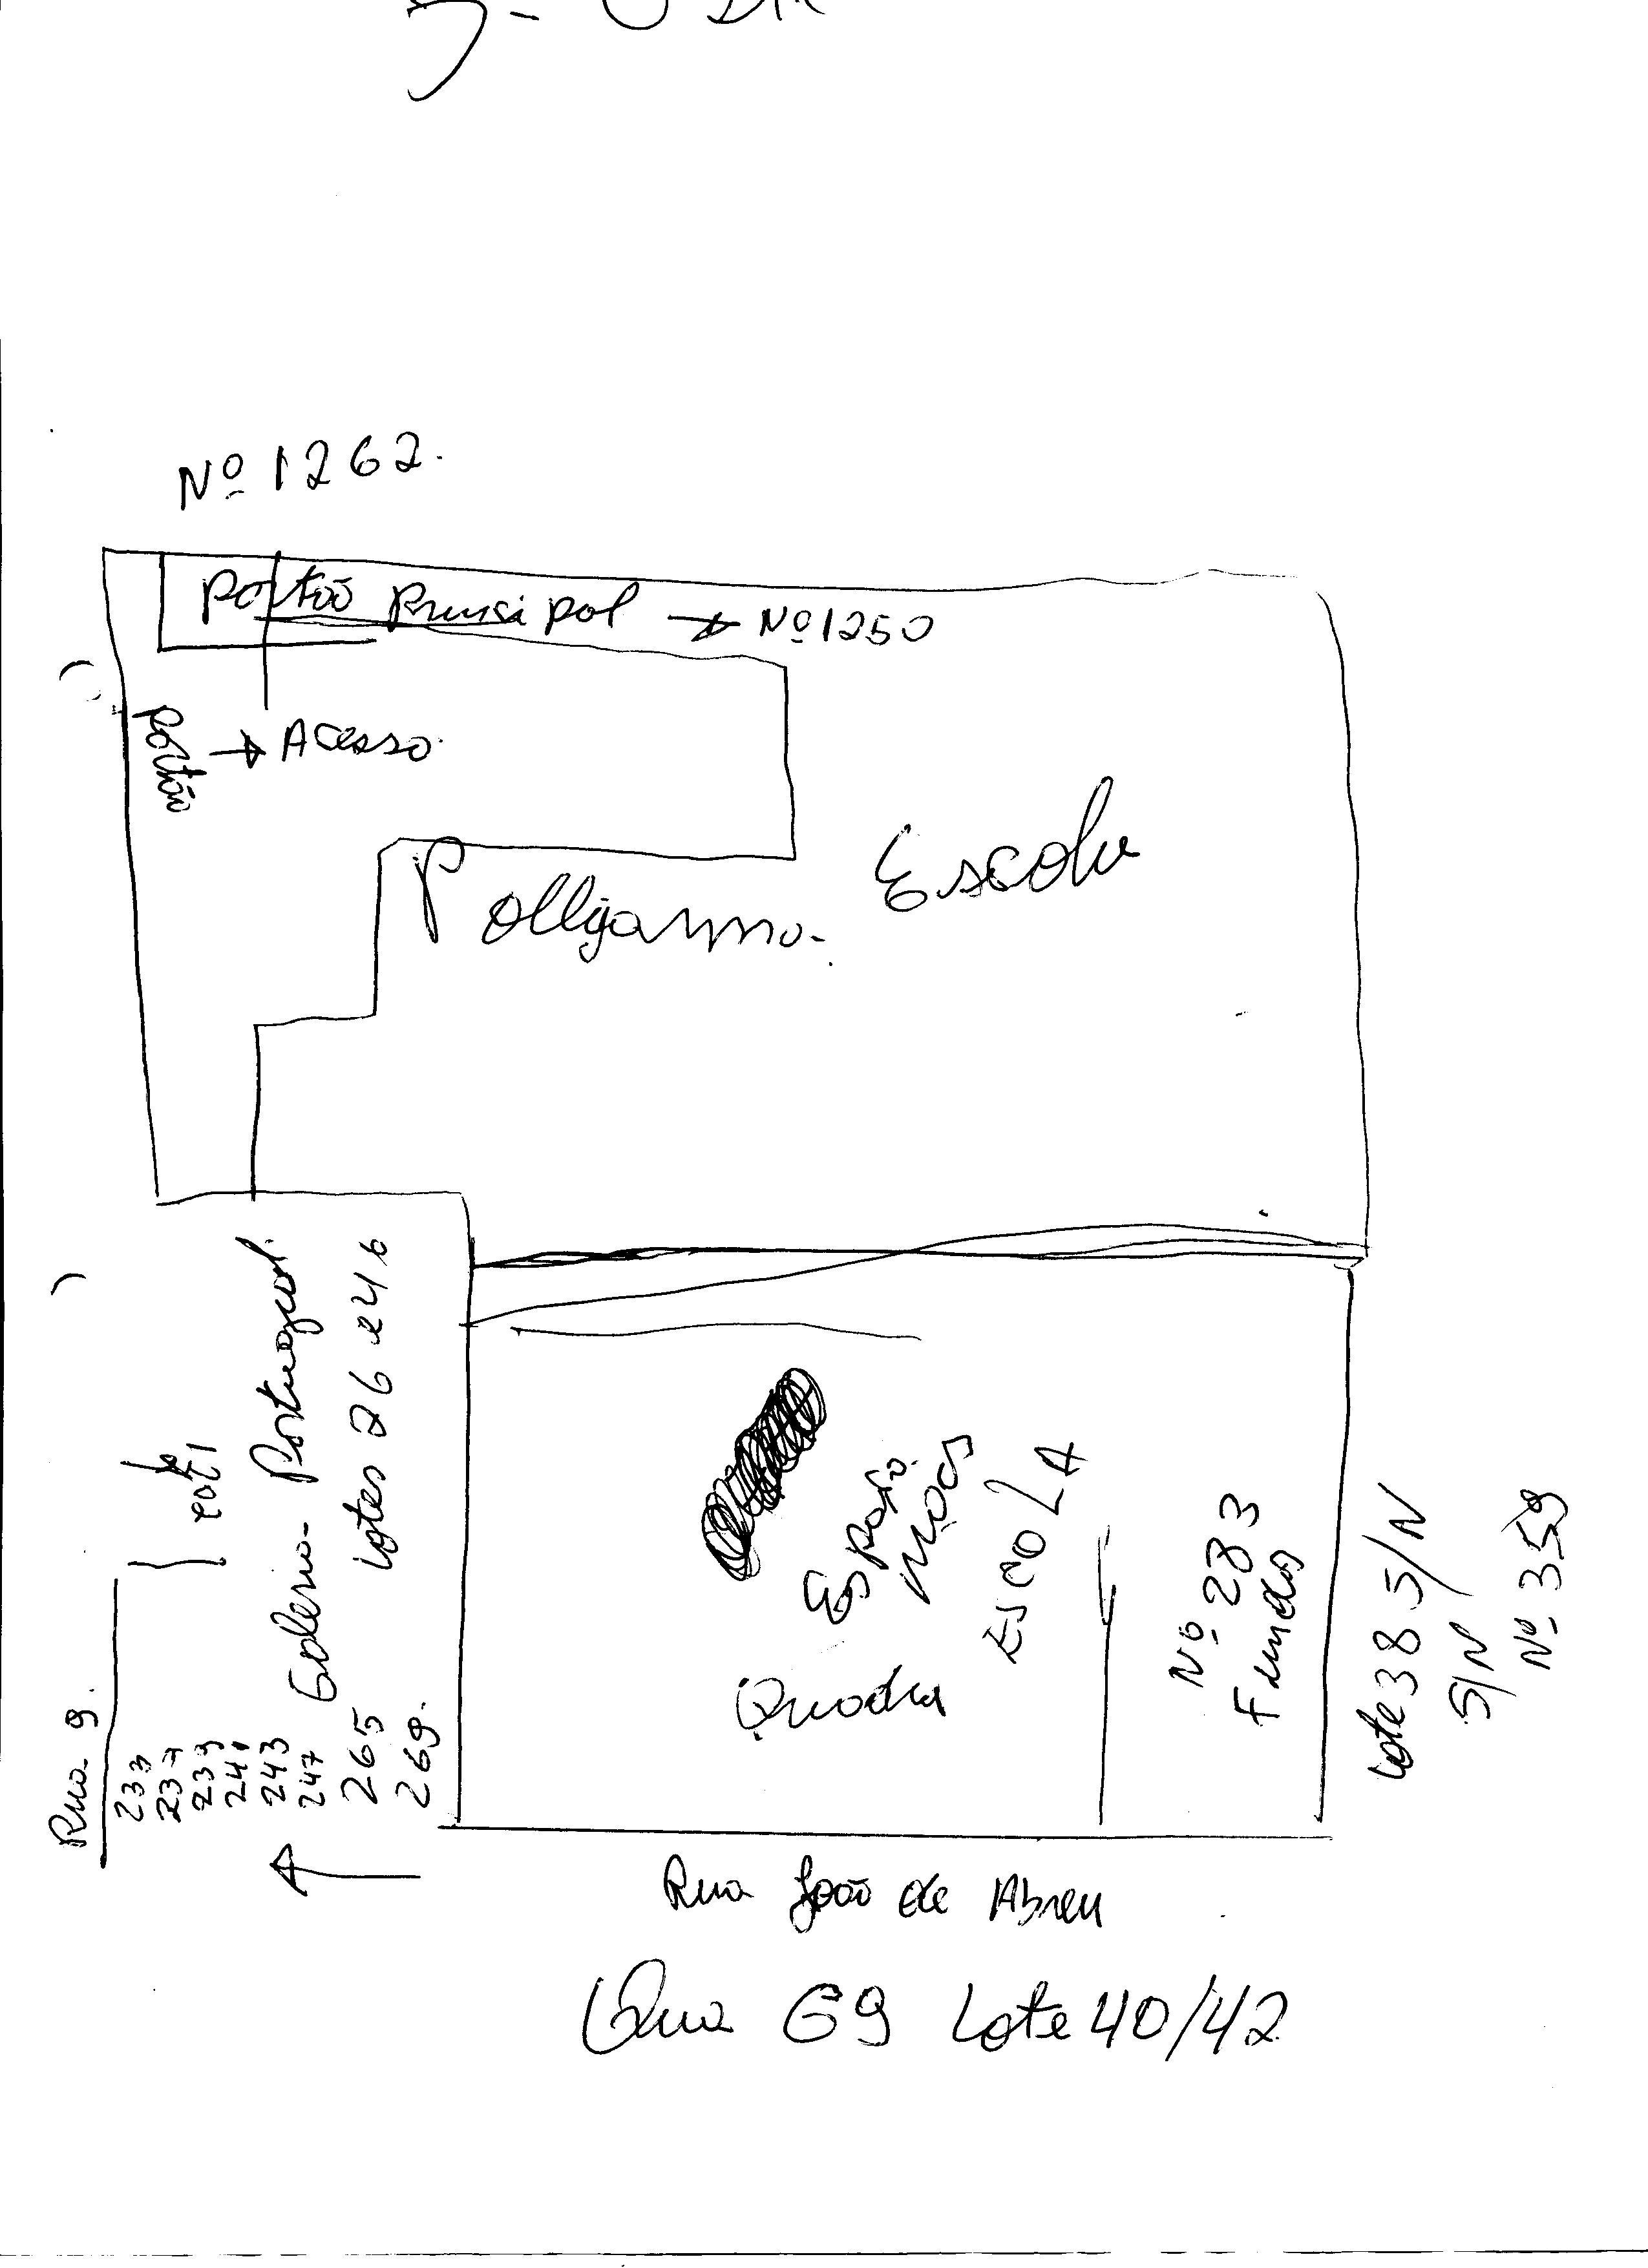 Nº 1262.
Portão Principal → Nº 1250
Portão → Acesso
Escola
Rua 9.
233
237
239
241
243
247 Galeria - Portugal.
265 Lotes 26 e 46
269.
Espaço
ESCOLA
Quadra
Nº 283
Fundos
Lote 38 S/N
S/N
Nº 359
Rua João de Abreu
Qua G9 Lote 40/42